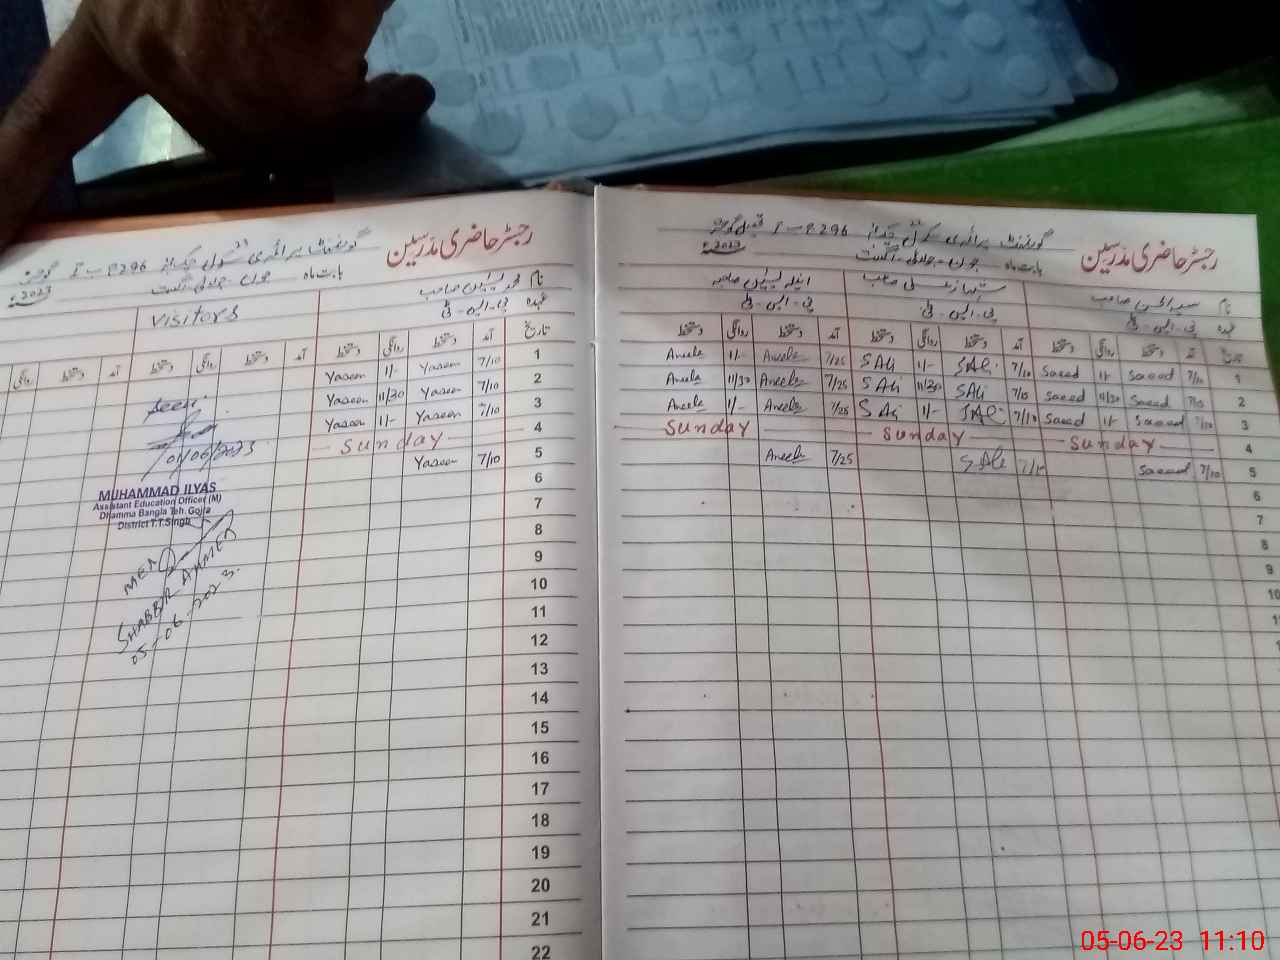 رجسٹر حاضری مدرسین
گورنمنٹ پرائمری سکول 296
بابت ماہ جون - جولائی - اگست 2023
نام محمد یٰسین صاحب
عہدہ پی - ایس - ٹی
visitors
تاریخ آمد دستخط روانگی دستخط آمد دستخط روانگی دستخط آمد دستخط روانگی
1 7/10 Yaseen 1/- Yaseen
2 7/10 Yaseen 11/30 Yaseen
3 7/10 Yaseen 1/- Yaseen
4 Sunday
5 7/10 Yaseen
6
7
8
9
10
11
12
13
14
15
16
17
18
19
20
21
22
Seen.
01/06/2023
MUHAMMAD ILYAS
Assistant Education Officer (M)
Dhamma Bangla Teh. Gojra
District T.T.Singh
MEA
SHABBIR AHMED
05-06-2023.
رجسٹر حاضری مدرسین
گورنمنٹ پرائمری سکول 296
بابت ماہ جون - جولائی - اگست 2023
نام صاحب صاحب صاحبہ
عہدہ پی - ایس - ٹی پی - ایس - ٹی پی - ایس - ٹی
تاریخ آمد دستخط روانگی دستخط آمد دستخط روانگی دستخط آمد دستخط روانگی دستخط
1 7/10 Saeed 1/- Saeed 7/10 S Ali 1/- S Ali 7/25 Aneela 1/- Aneela
2 7/10 Saeed 11/30 Saeed 7/10 S Ali 11/30 S Ali 7/25 Aneela 11/30 Aneela
3 7/10 Saeed 1/- Saeed 7/10 S Ali 1/- S Ali 7/25 Aneela 1/- Aneela
4 Sunday Sunday Sunday
5 7/10 Saeed 7/10 S Ali 7/25 Aneela
6
7
8
9
10
05-06-23 11:10